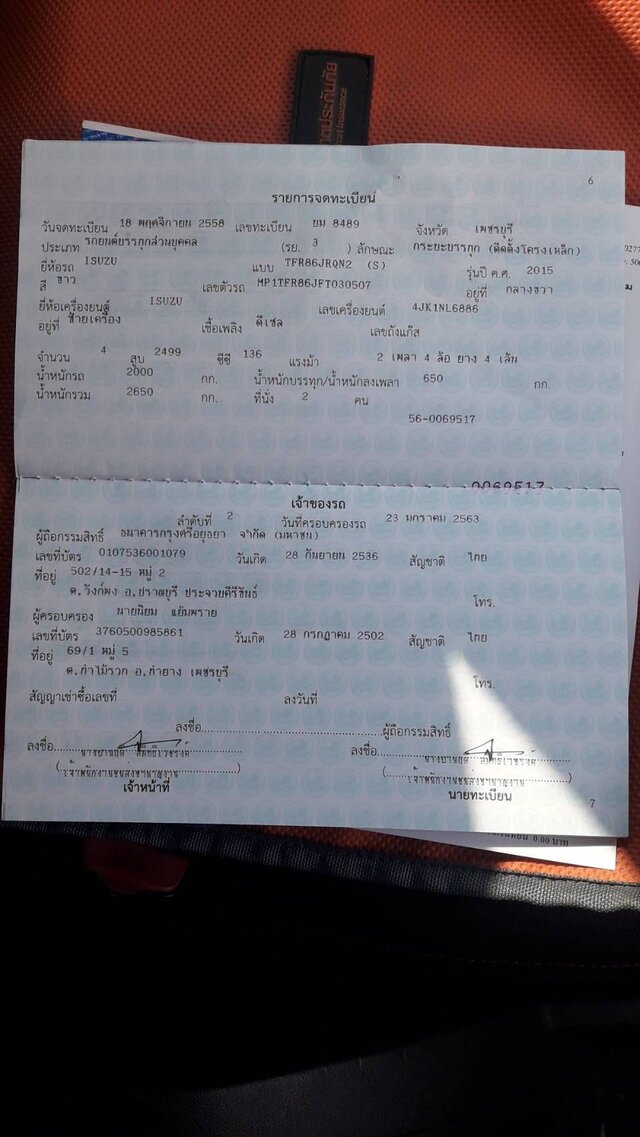 6
รายการจดทะเบียน
วันจดทะเบียน 18 พฤศจิกายน 2558 เลขทะเบียน ขม 8489 จังหวัด เพชรบุรี
ประเภท รถยนต์บรรทุกส่วนบุคคล (รย. 3 ) ลักษณะ กระบะบรรทุก (ติดตั้งโครงเหล็ก)
ยี่ห้อรถ ISUZU แบบ TFR86JRQN2 (S) รุ่นปี ค.ศ. 2015
สี ขาว เลขตัวรถ MP1TFR86JFT030507 อยู่ที่ กลางขวา
ยี่ห้อเครื่องยนต์ ISUZU เลขเครื่องยนต์ 4JK1NL6886
อยู่ที่ ซ้ายเครื่อง เชื้อเพลิง ดีเซล เลขถังแก๊ส
จำนวน 4 สูบ 2499 ซีซี 136 แรงม้า 2 เพลา 4 ล้อ ยาง 4 เส้น
น้ำหนักรถ 2000 กก. น้ำหนักบรรทุก/น้ำหนักลงเพลา 650 กก.
น้ำหนักรวม 2650 กก. ที่นั่ง 2 คน
56-0069517
0069517
เจ้าของรถ
ลำดับที่ 2 วันที่ครอบครองรถ 23 มกราคม 2563
ผู้ถือกรรมสิทธิ์ ธนาคารกรุงศรีอยุธยา จำกัด (มหาชน)
เลขที่บัตร 0107536001079 วันเกิด 28 กันยายน 2536 สัญชาติ ไทย
ที่อยู่ 502/14-15 หมู่ 2
ต.วังก์พง อ.ปราณบุรี ประจวบคีรีขันธ์ โทร.
ผู้ครอบครอง นายนิยม แย้มพราย
เลขที่บัตร 3760500985861 วันเกิด 28 กรกฎาคม 2502 สัญชาติ ไทย
ที่อยู่ 69/1 หมู่ 5
ต.ท่าไม้รวก อ.ท่ายาง เพชรบุรี โทร.
สัญญาเช่าซื้อเลขที่ ลงวันที่
ลงชื่อ ผู้ถือกรรมสิทธิ์
ลงชื่อ ลงชื่อ
เจ้าหน้าที่ นายทะเบียน
7
0.00 บาท